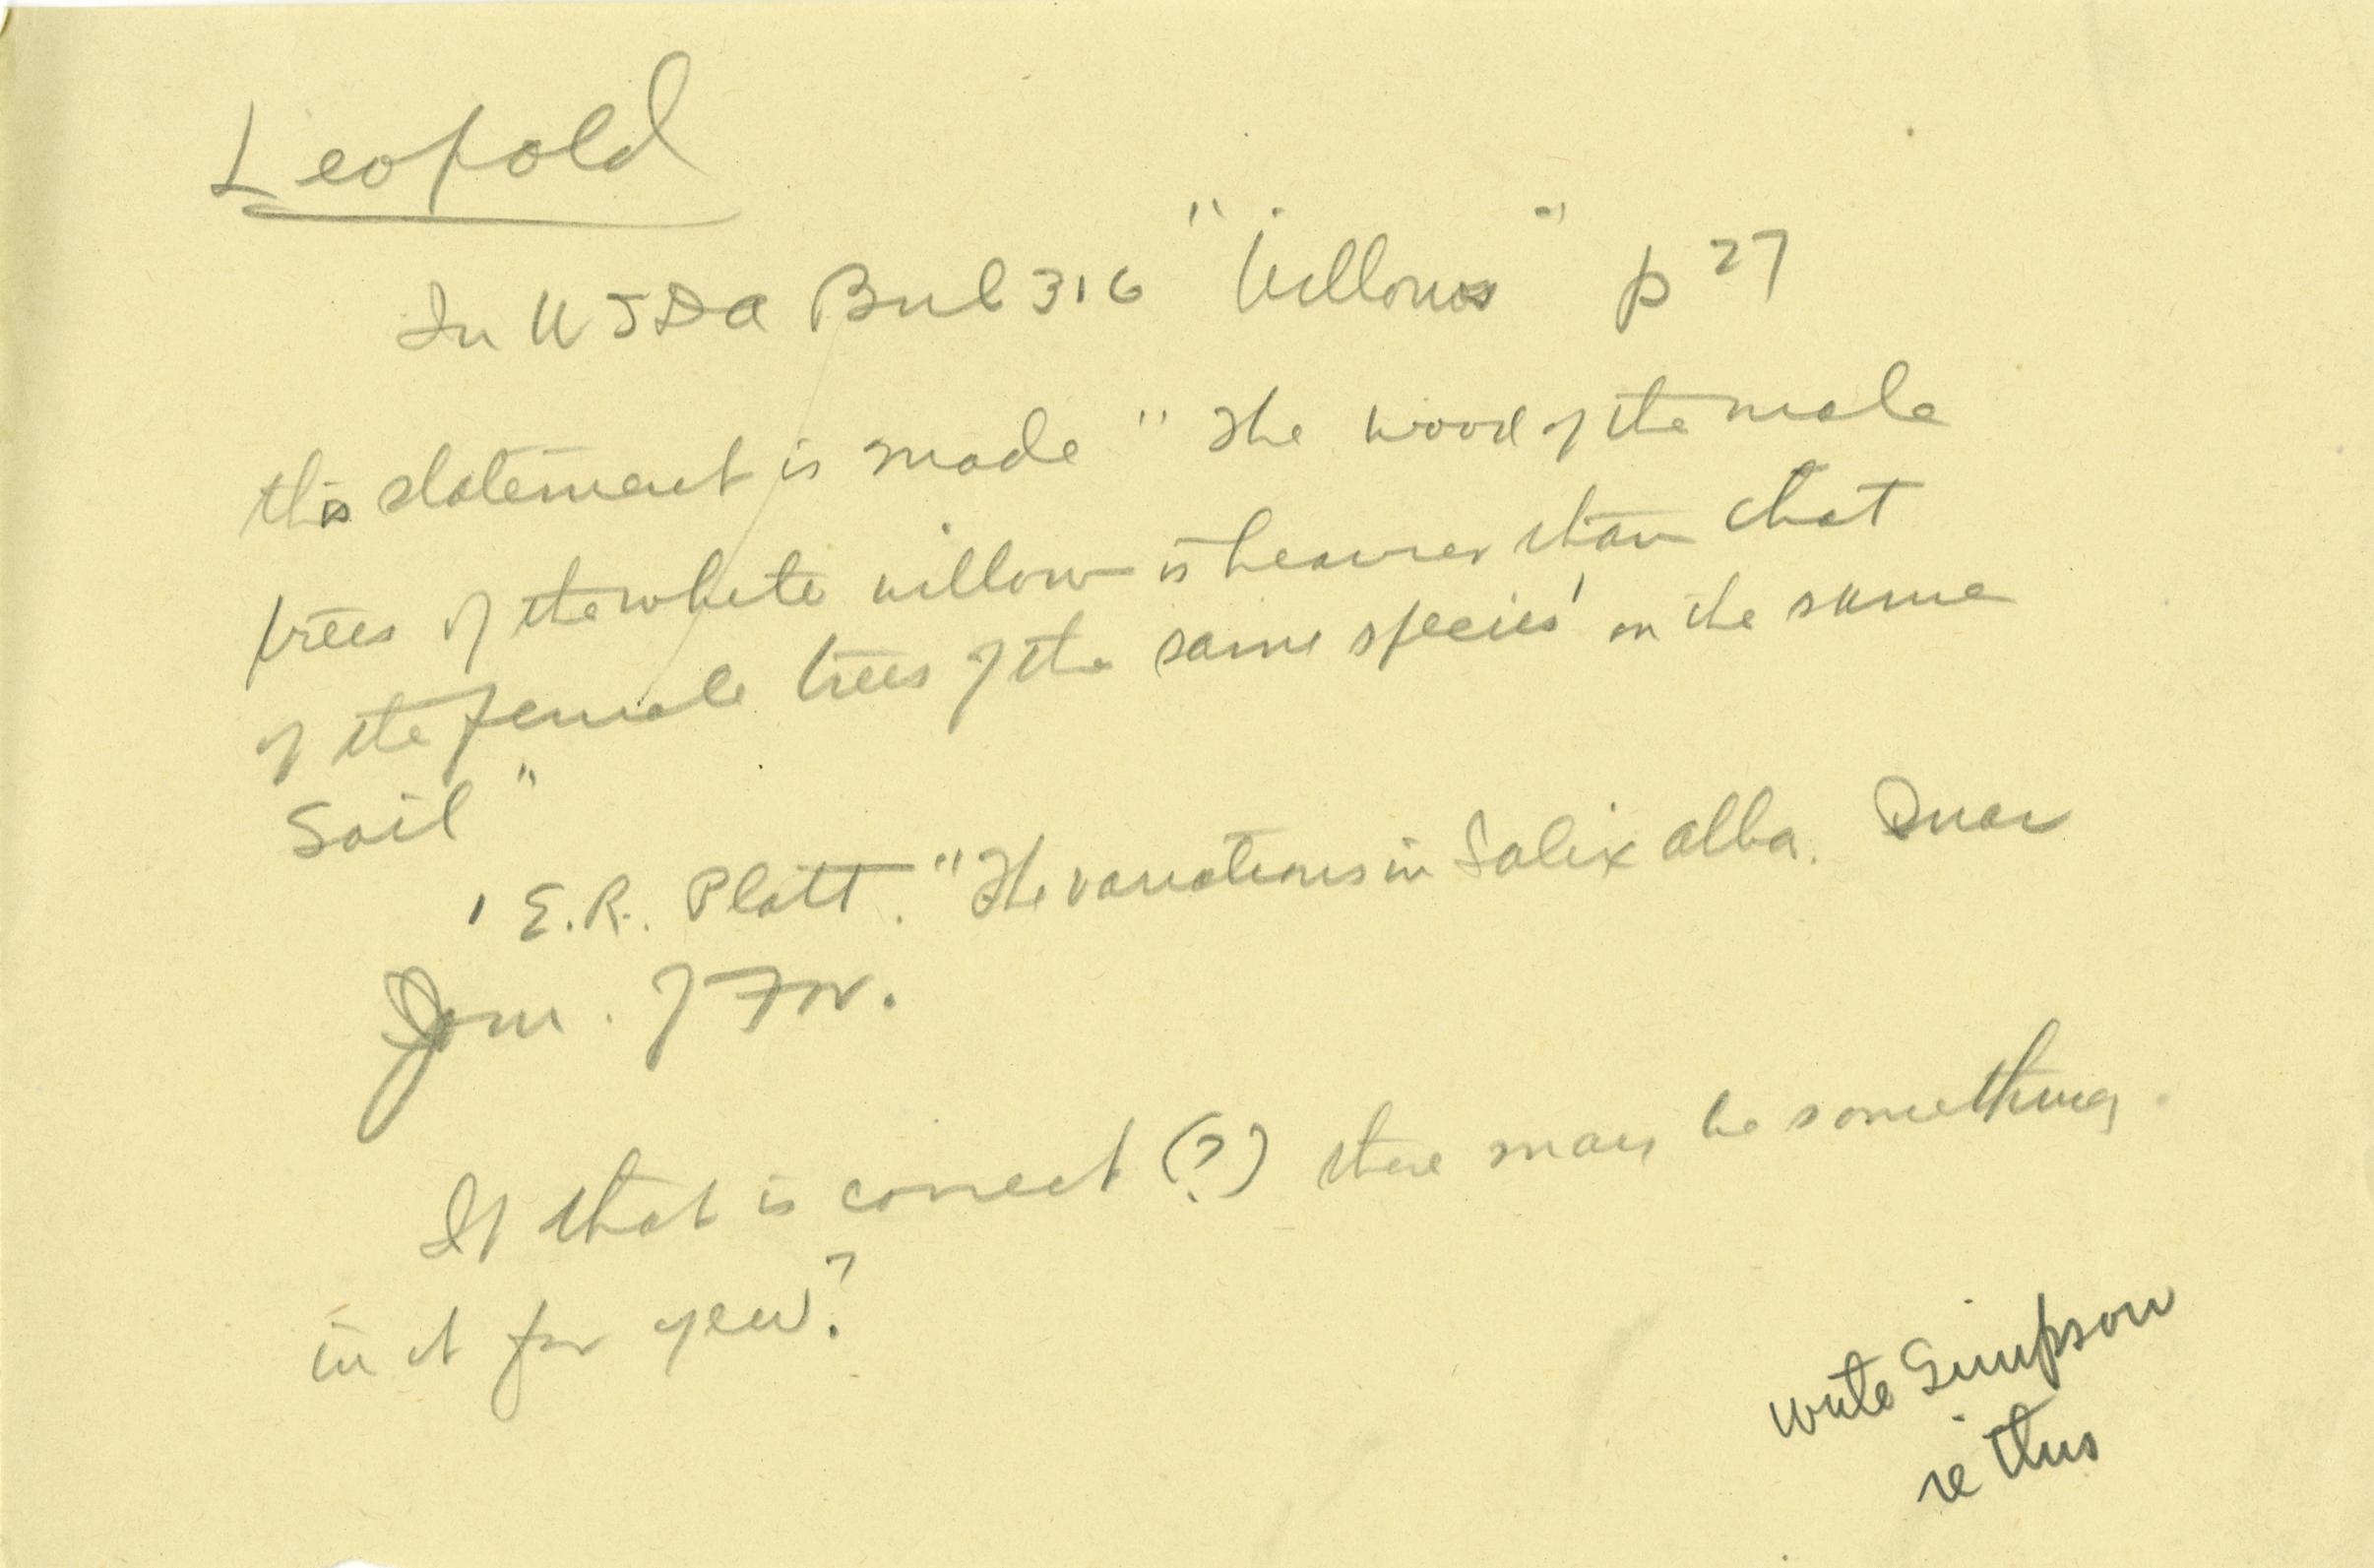 Leopold
In USDA Bul 316 "Willows" p 27
this statement is made "The wood of the male
trees of the white willow is heavier than that
of the female trees of the same species' on the same
Soil"
' E.R. Platt. "The variations in Salix alba. Quar
Jour. of For.
If that is correct (?) there may be something
in it for yew?
write Simpson
re this